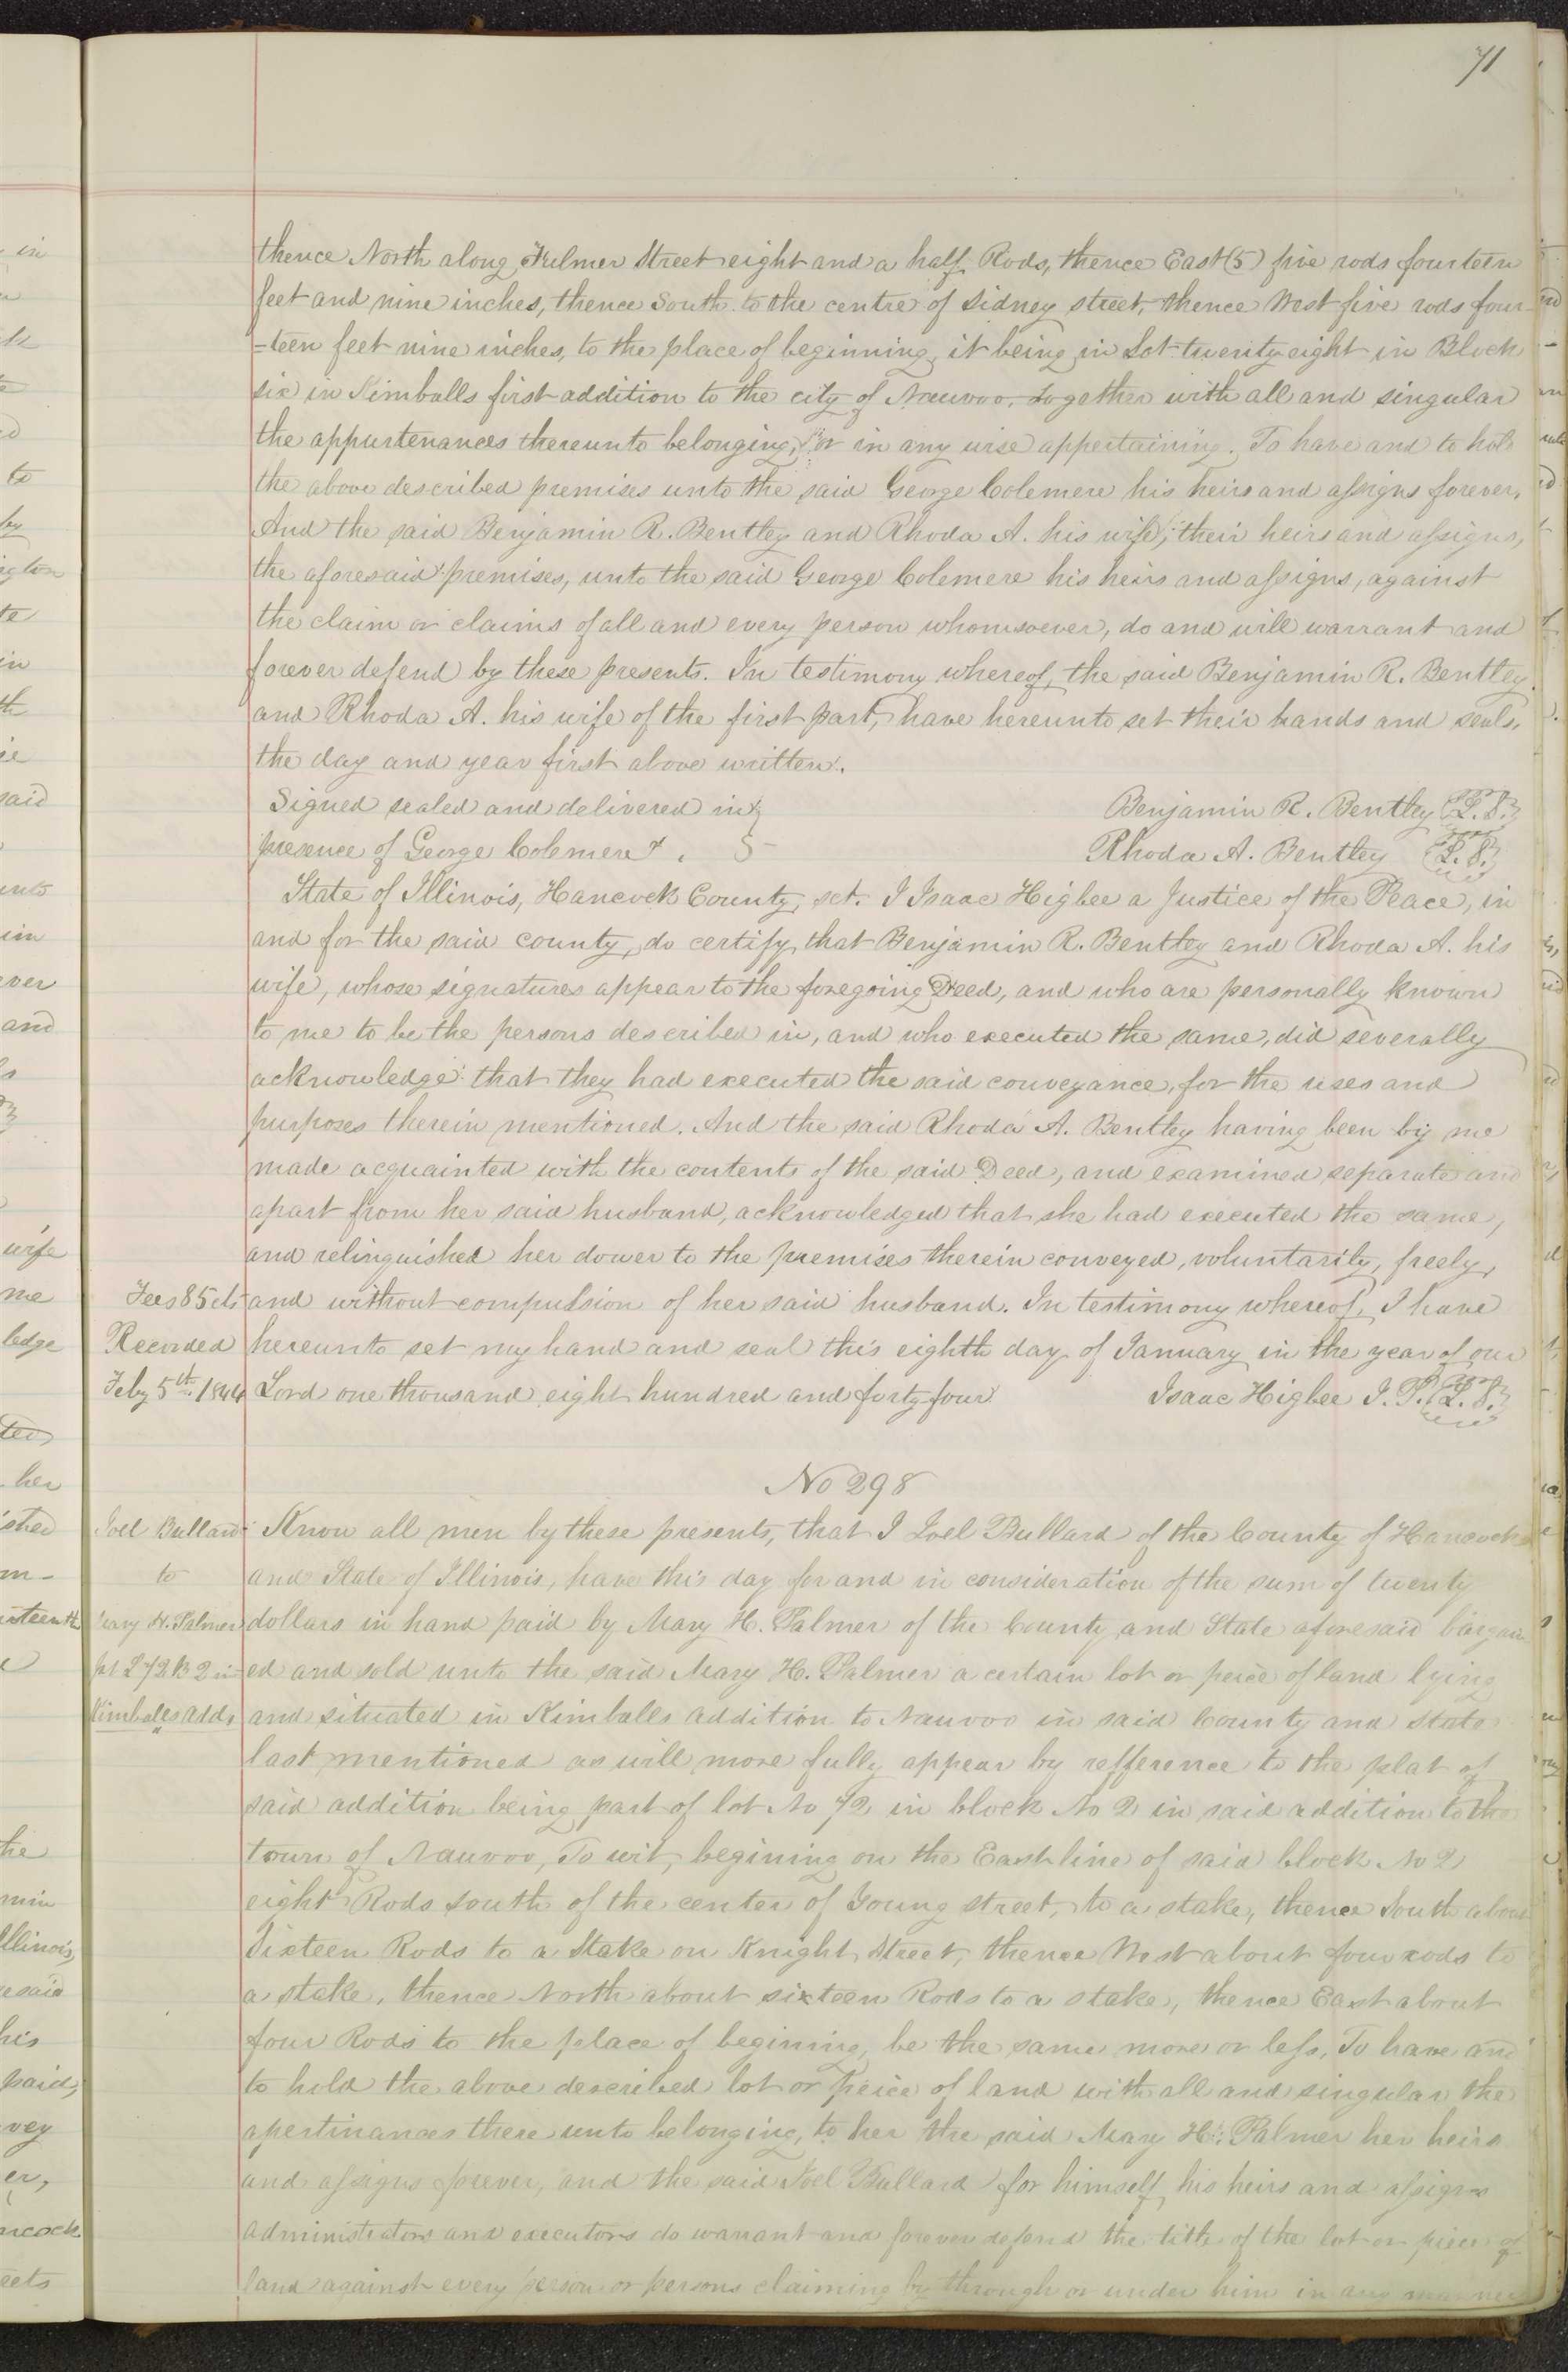 71
thence North along Fulmer Street eight and a half Rods, thence East (5) five rods fourteen
feet and nine inches, thence South to the centre of Sidney street, thence West five rods four-
=teen feet nine inches, to the place of beginning, it being in Lot twenty eight in Block
six in Kimballs first addition to the city of Nauvoo, together with all and singular
the appurtenances thereunto belonging, or in any wise appertaining. To have and to hold
the above described premises unto the said George Colemere his heirs and assigns forever,
And the said Benjamin R. Bentley and Rhoda A. his wife, their heirs and assigns,
the aforesaid premises, unto the said George Colemere his heirs and assigns, against
the claim or claims of all and every person whomsoever, do and will warrant and
forever defend by these presents. In testimony whereof, the said Benjamin R. Bentley
and Rhoda A. his wife of the first part, have hereunto set their hands and seals,
the day and year first above written.
Signed sealed and delivered in } Benjamin R. Bentley {L.S.}
presence of George Colemere + . } Rhoda A. Bentley {L.S.}
State of Illinois, Hancock County, sct. I Isaac Higbee a Justice of the Peace, in
and for the said county, do certify, that Benjamin R. Bentley and Rhoda A. his
wife, whose signatures appear to the foregoing Deed, and who are personally known
to me to be the persons described in, and who executed the same, did severally
acknowledge that they had executed the said conveyance, for the uses and
purposes therein mentioned. And the said Rhoda A. Bentley having been by me
made acquainted with the contents of the said Deed, and examined separate and
apart from her said husband, acknowledged that she had executed the same,
and relinquished her dower to the premises therein conveyed, voluntarily, freely,
Fees 85 cts and without compulsion of her said husband. In testimony whereof, I have
Recorded hereunto set my hand and seal this eighth day of January in the year of our
Feby 5th 1844 Lord one thousand eight hundred and forty four Isaac Higbee J. P. {L.S.}
No 298
Joel Bullard Know all men by these presents, that I Joel Bullard of the County of Hancock
to and State of Illinois, have this day for and in consideration of the sum of twenty
Mary H. Palmer dollars in hand paid by Mary H. Palmer of the County and State aforesaid bargain
pt L 72 B 2 in ed and sold unto the said Mary H. Palmer a certain lot or peice of land lying
Kimballs add, and situated in Kimballs addition to Nauvoo in said County and State
last mentioned as will more fully appear by refference to the plat of
said addition being part of lot No 72 in block No 2 in said addition to the
town of Nauvoo, To wit, begining on the East line of said block No 2
eight Rods South of the center of Young street, to a stake, thence South about
Sixteen Rods to a Stake on Knight Street, thence West about four rods to
a stake, thence North about sixteen Rods to a stake, thence East about
four Rods to the place of begining, be the same more or less, To have and
to hold the above described lot or peice of land with all and singular the
apertinances there unto belonging, to her the said Mary H. Palmer her heirs
and assigns forever, and the said Joel Bullard for himself, his heirs and assigns
administrators and executors do warrant and forever defend the title of the lot or piece of
land against every person or persons claiming by through or under him in any manner